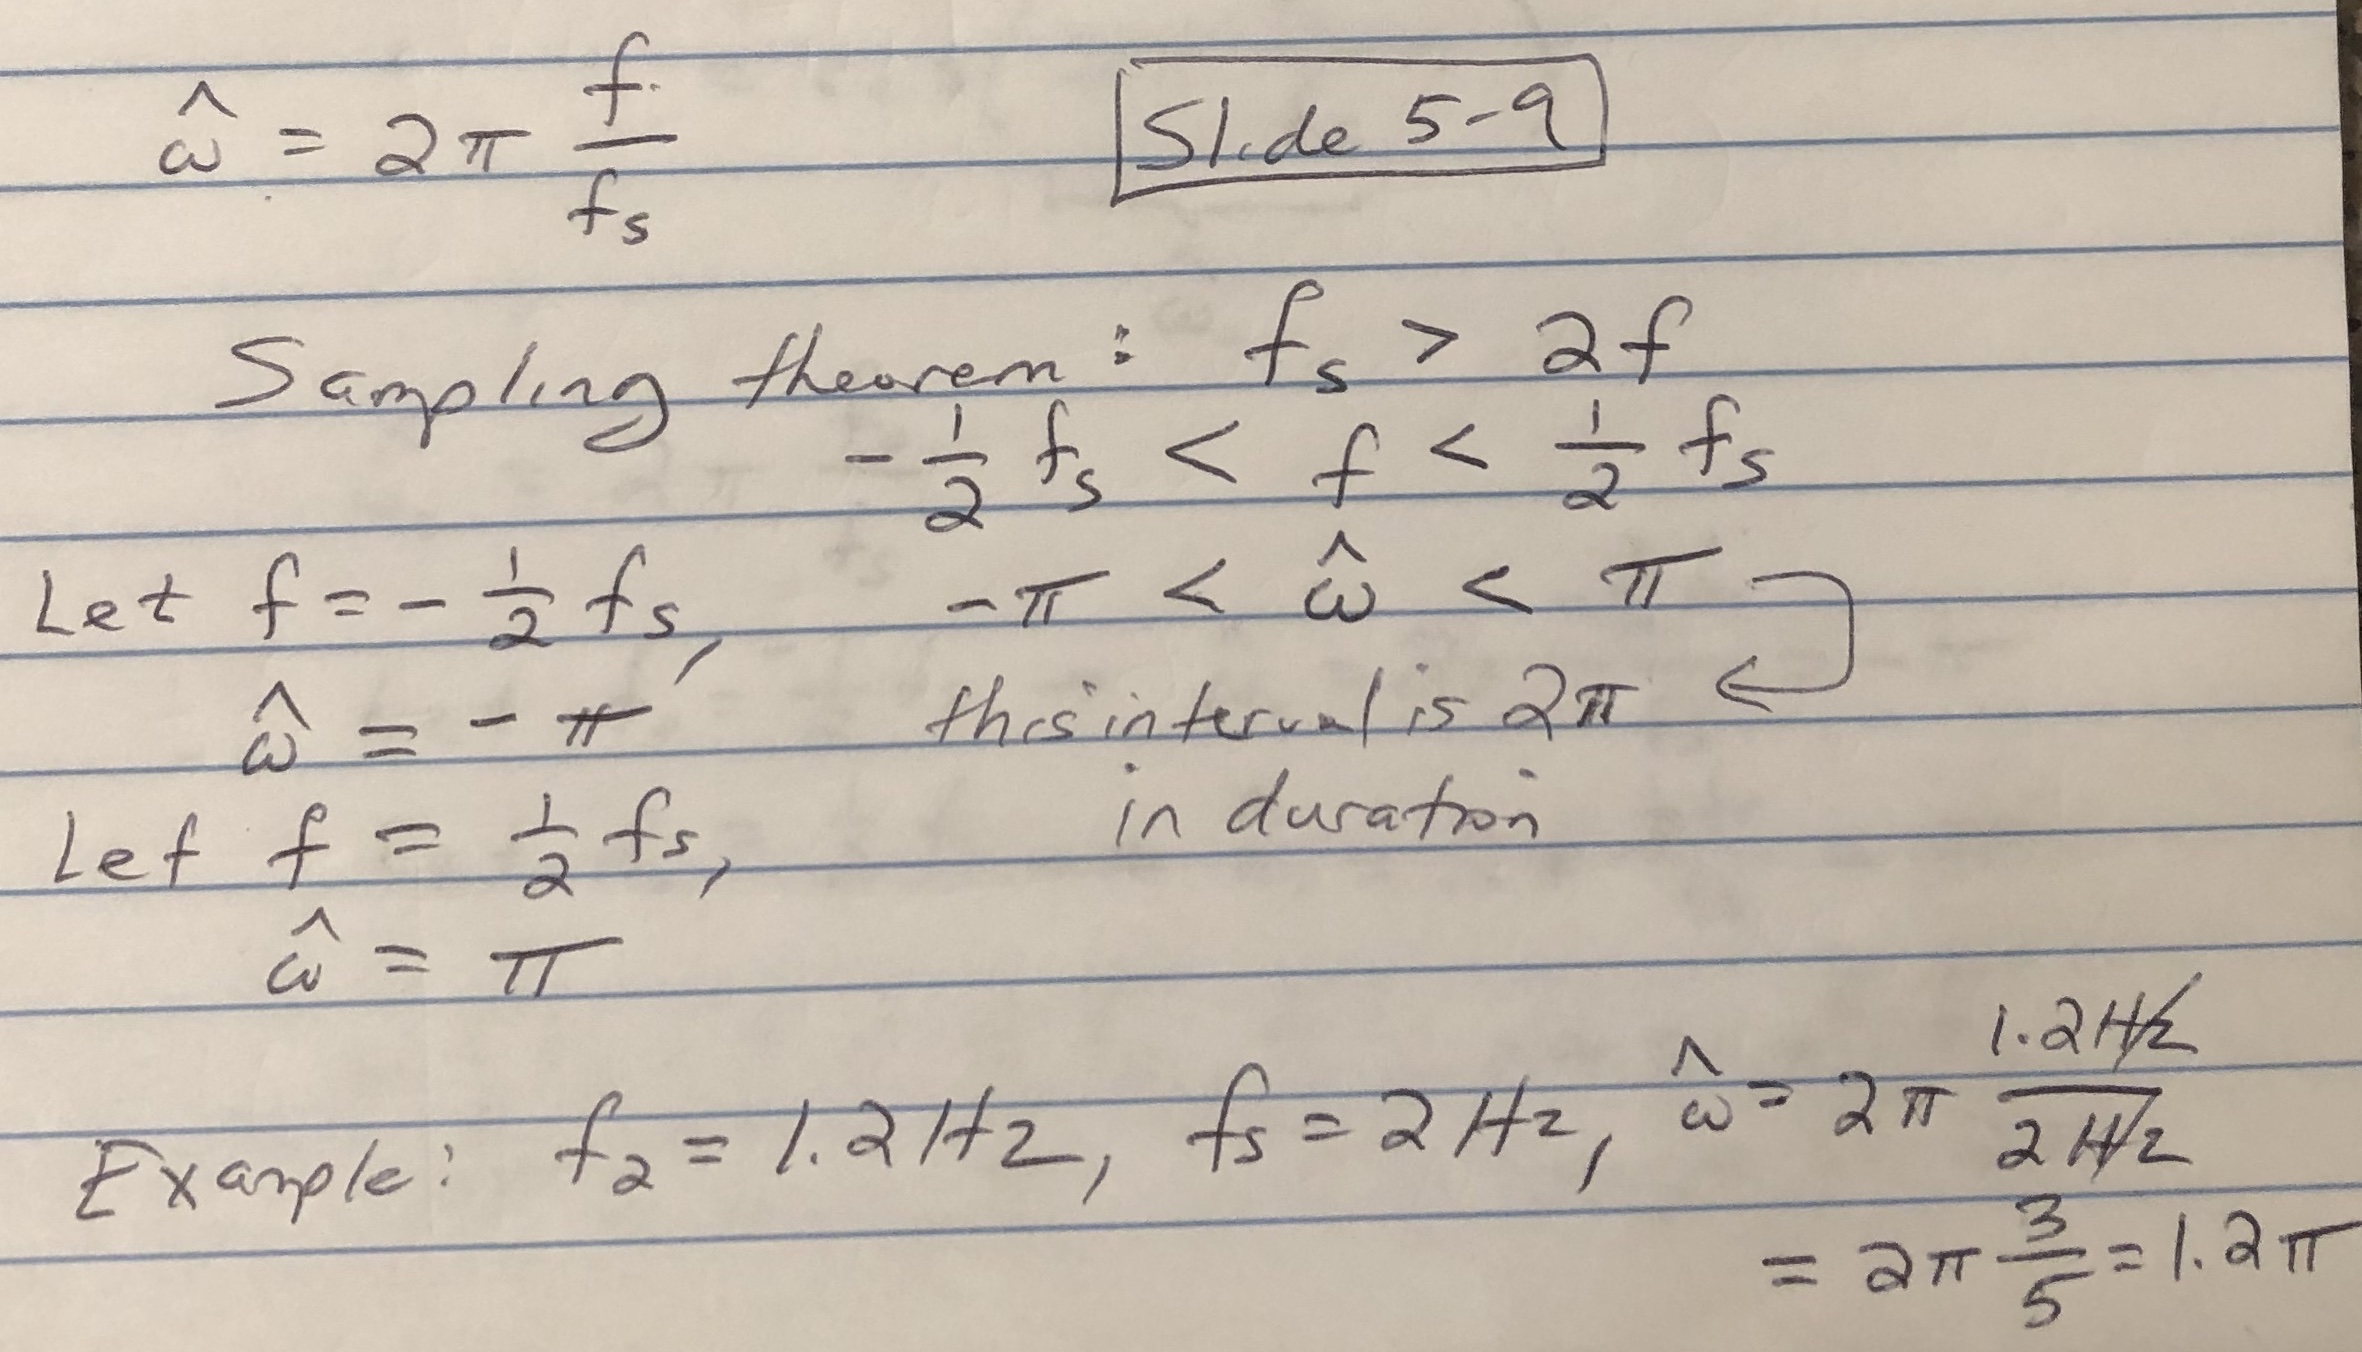 ω̂ = 2π f/fs
Slide 5-9
Sampling theorem: fs > 2f
-1/2 fs < f < 1/2 fs
Let f = -1/2 fs, -π < ω̂ < π
ω̂ = -π this interval is 2π
in duration
Let f = 1/2 fs,
ω̂ = π
Example: f2 = 1.2 Hz, fs = 2 Hz, ω̂ = 2π 1.2 Hz/2 Hz
= 2π 3/5 = 1.2π